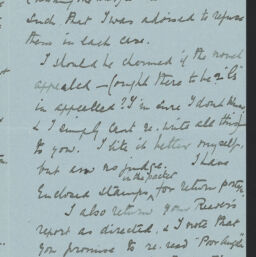 such that I was advised to refuse
them in each case.
I should be charmed if the novel
appealed — (ought there to be 2 "l's"
in appealled? I'm sure I don't know
& I simply can't re-write all this
to you. I like it better myself,
but am no judge. I have
in the packet
Enclosed stamps, for return postage.
I also return your Reader's
report as directed. & I note that
you promise to re-read "Poor